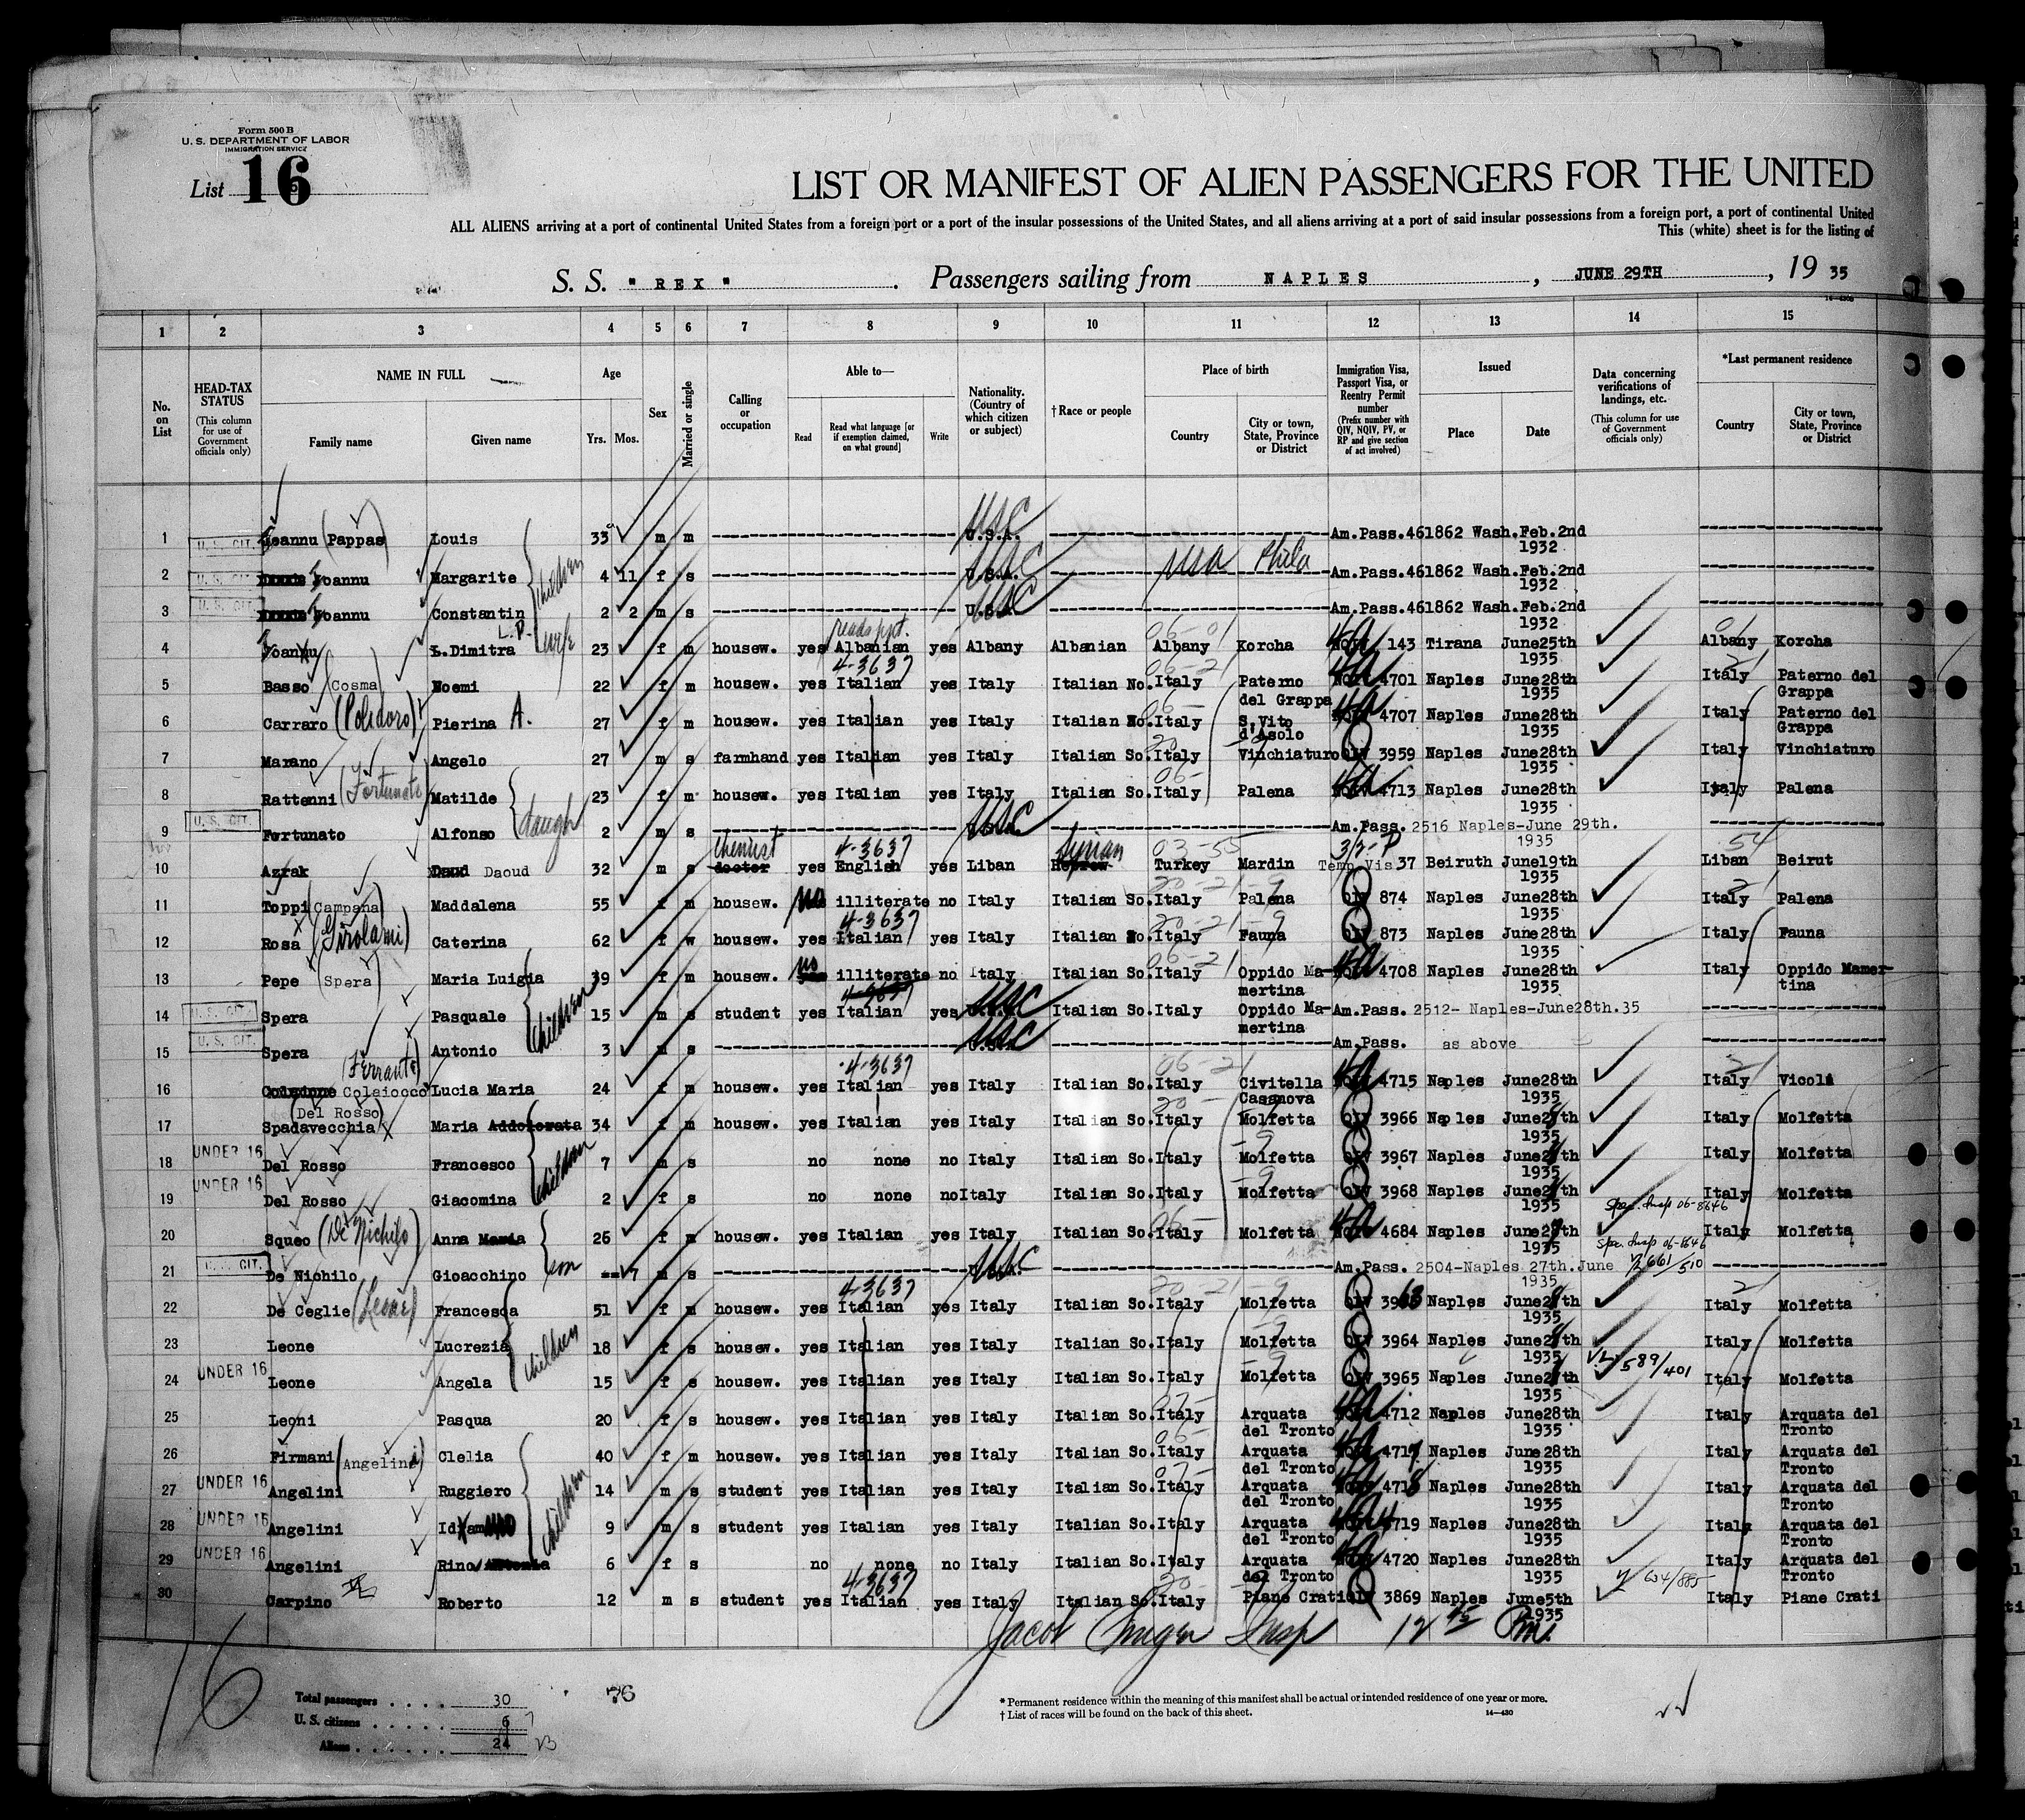 Form 500 B
U. S. DEPARTMENT OF LABOR
IMMIGRATION SERVICE
List 16
LIST OR MANIFEST OF ALIEN PASSENGERS FOR THE UNITED
ALL ALIENS arriving at a port of continental United States from a foreign port or a port of the insular possessions of the United States, and all aliens arriving at a port of said insular possessions from a foreign port, a port of continental United
This (white) sheet is for the listing of
S. S. "REX". Passengers sailing from NAPLES, JUNE 29TH, 1935
1 2 3 4 5 6 7 8 9 10 11 12 13 14 15
No. on List
HEAD-TAX STATUS (This column for use of Government officials only)
NAME IN FULL Family name Given name
Age Yrs. Mos.
Sex
Married or single
Calling or occupation
Able to— Read Read what language [or if exemption claimed, on what ground] Write
Nationality. (Country of which citizen or subject)
†Race or people
Place of birth Country City or town, State, Province or District
Immigration Visa, Passport Visa, or Reentry Permit number (Prefix number with QIV, NQIV, PV, or RP and give section of act involved)
Issued Place Date
Data concerning verifications of landings, etc. (This column for use of Government officials only)
*Last permanent residence Country City or town, State, Province or District
1 U. S. CIT. Joannu (Pappas) Louis 33 m m USC U.S.A. Am.Pass.461862 Wash.Feb.2nd 1932
2 U. S. CIT. Joannu Margarite 4 11 f s children USC U.S.A. USA Phila Am.Pass.461862 Wash.Feb.2nd 1932
3 U. S. CIT. Joannu Constantin 2 2 m s USC U.S.A. Am.Pass.461862 Wash.Feb.2nd 1932
4 Joannu L.Dimitra L.P. wife 23 f m housew. yes Albanian yes Albany Albanian Albany Korcha 143 Tirana June25th 1935 Albany Korcha
5 Basso (Cosma) Noemi 22 f m housew. yes Italian 4-3637 yes Italy Italian No. Italy Paterno del Grappa 4701 Naples June28th 1935 Italy Paterno del Grappa
6 Carraro (Polidoro) Pierina A. 27 f m housew. yes Italian yes Italy Italian No. Italy S.Vito d'Asolo 4707 Naples June28th 1935 Italy Paterno del Grappa
7 Marano Angelo 27 m s farmhand yes Italian yes Italy Italian So. Italy Vinchiaturo QIV 3959 Naples June28th 1935 Italy Vinchiaturo
8 Rattenni (Fortunato) Matilde 23 f m housew. yes Italian yes Italy Italian So. Italy Palena 4713 Naples June28th 1935 Italy Palena
9 U. S. CIT. Fortunato Alfonso daugh 2 m s USC Am.Pass. 2516 Naples-June 29th. 1935
10 Azrak Daoud 32 m s chemist doctor yes English 4-3637 yes Liban Syrian Hebrew Turkey Mardin Temp Vis 37 Beiruth June19th 1935 Liban Beirut
11 Toppi (Campana) Maddalena 55 f m housew. no illiterate no Italy Italian So. Italy Palena QIV 874 Naples June28th 1935 Italy Palena
12 Rosa (Girolami) Caterina 62 f w housew. yes Italian 4-3637 yes Italy Italian No. Italy Fauna QIV 873 Naples June28th 1935 Italy Fauna
13 Pepe (Spera) Maria Luigia 39 f m housew. no illiterate no Italy Italian So. Italy Oppido Mamertina 4708 Naples June28th 1935 Italy Oppido Mamertina
14 U. S. CIT. Spera Pasquale children 15 m s student yes Italian yes USC Italian So. Italy Oppido Mamertina Am.Pass. 2512- Naples-June28th.35
15 U. S. CIT. Spera Antonio 3 m s USC Am.Pass. as above
16 Colaiocco (Ferrante) Lucia Maria 24 f m housew. yes Italian 4-3637 yes Italy Italian So. Italy Civitella Casanova 4715 Naples June28th 1935 Italy Vicoli
17 Spadavecchia (Del Rosso) Maria Addolorata 34 f m housew. yes Italian yes Italy Italian So. Italy Molfetta QIV 3966 Naples June 1935 Italy Molfetta
18 UNDER 16 Del Rosso Francesco children 7 m s no none no Italy Italian So. Italy Molfetta QIV 3967 Naples June 1935 Italy Molfetta
19 UNDER 16 Del Rosso Giacomina 2 f s no none no Italy Italian So. Italy Molfetta QIV 3968 Naples June 1935 Italy Molfetta
Spec. Insp 06-8646
20 Squeo (De Nichilo) Anna Maria 26 f m housew. yes Italian yes Italy Italian So. Italy Molfetta 4684 Naples June 1935 Italy Molfetta
Spec. Insp 06-8646
21 U. S. CIT. De Nichilo Gioacchino son 7 m s USC Am.Pass. 2504-Naples 27th.June 1935 2661/510
22 De Ceglie (Leone) Francesca 51 f m housew. yes Italian 4-3637 yes Italy Italian So. Italy Molfetta QIV 3963 Naples June 1935 Italy Molfetta
23 Leone Lucrezia children 18 f s housew. yes Italian yes Italy Italian So. Italy Molfetta QIV 3964 Naples June 1935 Italy Molfetta
24 UNDER 16 Leone Angela 15 f s housew. yes Italian yes Italy Italian So. Italy Molfetta QIV 3965 Naples June 1935 589/401 Italy Molfetta
25 Leoni Pasqua 20 f s housew. yes Italian yes Italy Italian So. Italy Arquata del Tronto 4712 Naples June28th 1935 Italy Arquata del Tronto
26 Firmani (Angelini) Clelia 40 f m housew. yes Italian yes Italy Italian So. Italy Arquata del Tronto 4717 Naples June28th 1935 Italy Arquata del Tronto
27 UNDER 16 Angelini Ruggiero children 14 m s student yes Italian yes Italy Italian So. Italy Arquata del Tronto 4718 Naples June28th 1935 Italy Arquata del Tronto
28 UNDER 16 Angelini 9 m s student yes Italian yes Italy Italian So. Italy Arquata del Tronto 4719 Naples June28th 1935 Italy Arquata del Tronto
29 UNDER 16 Angelini Rino 6 f s no none no Italy Italian So. Italy Arquata del Tronto 4720 Naples June28th 1935 Italy Arquata del Tronto
30 Carpino Roberto 12 m s student yes Italian 4-3637 yes Italy Italian So. Italy Piane Crati QIV 3869 Naples June5th 1935 634/885 Italy Piane Crati
Jacob Insp 12 45 Pm.
16
Total passengers 30
U. S. citizens 6 7
Aliens 24 23
76
* Permanent residence within the meaning of this manifest shall be actual or intended residence of one year or more.
† List of races will be found on the back of this sheet.
14—430